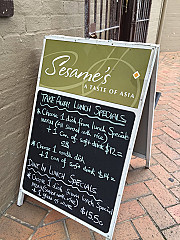 Sesame's
A TASTE OF ASIA
TAKE AWAY LUNCH SPECIALS
* Choose 1 dish from lunch Specials
menu (all served with rice)
+ 1 can of soft drink $12
OR
* Choose 1 noodle dish
+ 1 can of soft drink $14
DINE IN LUNCH SPECIALS
* Choose 1 dish from lunch Specials
$15.50